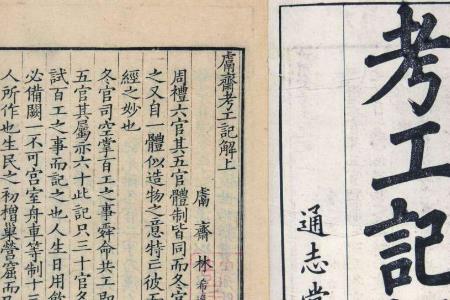 考工記
通志堂
鬳齋考工記解上
鬳齋林希逸
周禮六官其五官體制皆同而冬官
之又自一體似造物之意特亖彼五
經之妙也
冬官司空掌百工之事舜命共工即
五官其屬亦六十此記只三十官各
試百工之事而記之也人生日用飲
必備闕一不可宮室舟車等制十三
人所作也生民之初橧巢營窟而又